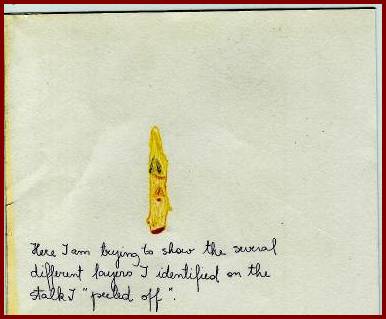 Here I am trying to show the several
different layers I identified on the
stalk I "peeled off".